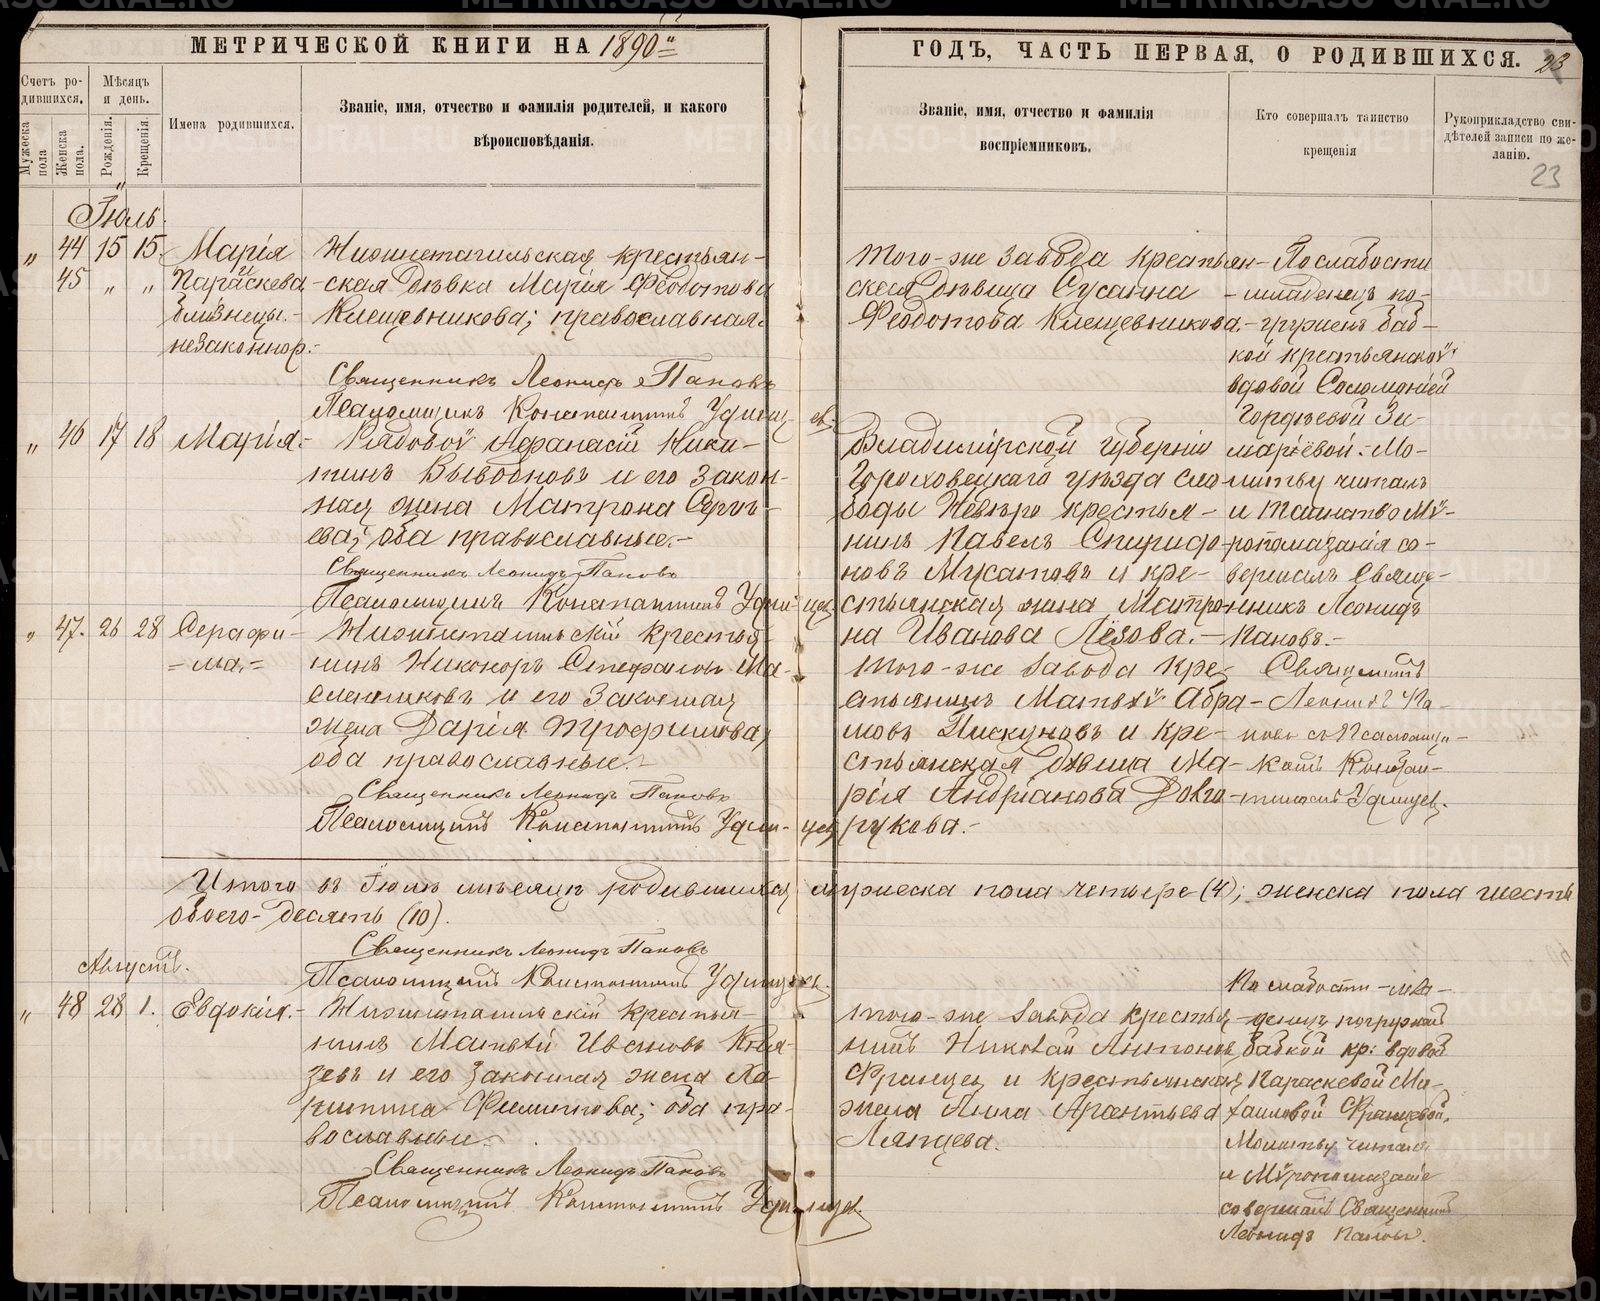 МЕТРИЧЕСКОЙ КНИГИ НА 1890
Счетъ ро-
дившихся.
Мужеска пола
Женска пола.
Мѣсяцъ
и день.
Рожденія.
Крещенія.
Имена родившихся.
Званіе, имя, отчество и фамилія родителей, и какого
вѣроисповѣданія.
Іюль.
„ 44 15 15. Марія
45 „ „ Параскева
близнецы.-
незаконнор.-
Нижнетагильская крестьян-
-ская дѣвка Марія Ѳеодотова
Клещевникова; православная.
Священникъ Леонидъ Паповъ
Псаломщикъ Константинъ Удинцев.
„ 46 17 18 Марія.-
Рядовой Афанасій Ники-
тинъ Выводновъ и его закон-
ная жена Матрона Сергѣ-
ева; оба православные.-
Священникъ Леонидъ Паповъ
Псаломщикъ Константинъ Удинцев.
„ 47. 26 28 Серафи-
-ма.-
Нижнетагильскій крестья-
нинъ Никоноръ Стефановъ Ма-
сленниковъ и его законная
жена Дарія Трофимова,
оба православные.-
Священникъ Леонидъ Паповъ
Псаломщикъ Константинъ Удинцев
Итого въ Іюлѣ мѣсяцѣ родившихся мужеска пола четыре (4); женска пола шесть
обоего- десять (10).
Священникъ Леонидъ Паповъ
Псаломщикъ Константинъ Удинцевъ.
Августъ.
„ 48 28 1. Евдокія.-
Нижнетагильскій крестья-
нинъ Матвѣй Ивановъ Кня-
зевъ и его законная жена Ха-
ритина Филиппова; оба пра-
вославные.-
Священникъ Леонидъ Паповъ
Псаломщикъ Константинъ Удинцев.
ГОДЪ, ЧАСТЬ ПЕРВАЯ, О РОДИВШИХСЯ. 23
Званіе, имя, отчество и фамилія
воспріемниковъ.
Кто совершалъ таинство
крещенія
Рукоприкладство сви-
дѣтелей записи по же-
ланію.
23
Того-же завода крестьян-
ская дѣвица Сусанна
Ѳеодотова Клещевникова.-
По слабости
-младенецъ по-
-груженъ баб-
кой крестьянской
вдовой Соломоніей
Гордѣевой Зи-
маріёвой.- Мо-
литву читалъ
и таинство Мѵ-
ропомазанія со-
вершилъ Священ-
никъ Леонидъ
Паповъ.-
Владимірской губерніи
Гороховецкаго уѣзда сло-
боды Невѣро крестья-
нинъ Павелъ Спиридо-
новъ Мусатовъ и кре-
стьянская жена Матро-
на Иванова Лёзова.-
того-же завода кре-
стьянинъ Матвѣй Абра-
мовъ Пискуновъ и кре-
стьянская дѣвица Ма-
рія Андріанова Долго-
рукова.-
Священникъ
- Леонидъ Па-
повъ съ Псаломщи-
комъ Констан-
тиномъ Удинцев.
того-же завода крестья-
нинъ Николай Антоновъ
Францев и крестьянская
жена Анна Арсентьева
Ляпцева.
По слабости -мла-
денецъ погруженъ
бабкой кр: вдовой
Параскевой Ма-
хаиловой Францевой.
Молитву читалъ
и Мѵропомазаніе
совершилъ Священникъ
Леонидъ Паповъ.
METRIKI.GASO-URAL.RU